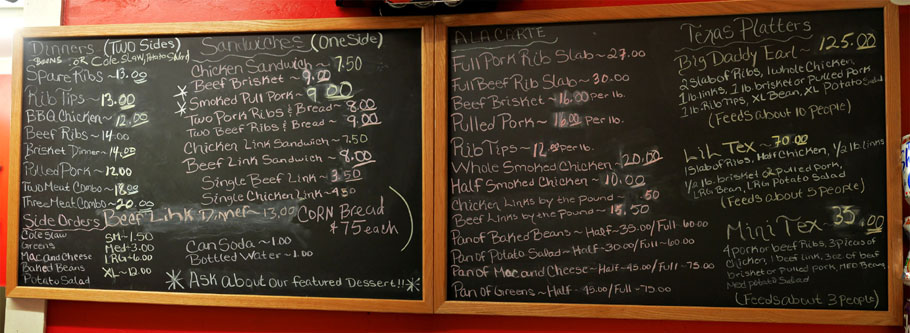 Dinners (Two Sides)
Beans or Cole Slaw, Potato Salad
Spare Ribs ~ 13.00
Rib Tips ~ 13.00
BBQ Chicken ~ 12.00
Beef Ribs ~ 14.00
Brisket Dinner ~ 14.00
Pulled Pork ~ 12.00
Two Meat Combo ~ 18.00
Three Meat Combo ~ 20.00
Beef Link Dinner ~ 13.00
Side Orders
Cole Slaw
Greens
Mac and Cheese
Baked Beans
Potato Salad
SM ~ 1.50
Med ~ 3.00
LRG ~ 6.00
XL ~ 12.00
Sandwiches (One Side)
Chicken Sandwich ~ 7.50
Beef Brisket ~ 9.00
* Smoked Pull Pork ~ 9.00
Two Pork Ribs & Bread ~ 8.00
Two Beef Ribs & Bread ~ 9.00
Chicken Link Sandwich ~ 7.50
Beef Link Sandwich ~ 8.00
Single Beef Link ~ 3.50
Single Chicken Link ~
Corn Bread
$.75 each
Can Soda ~ 1.00
Bottled Water ~ 1.00
* Ask about our featured Dessert!! *
ALACARTE
Full Pork Rib Slab ~ 27.00
Full Beef Rib Slab ~ 30.00
Beef Brisket ~ 16.00 per lb.
Pulled Pork ~ 16.00 per lb.
Rib Tips ~ 12.00 per lb.
Whole Smoked Chicken ~ 20.00
Half Smoked Chicken ~ 10.00
Chicken Links by the Pound ~ .50
Beef Links by the Pound ~ 15.50
Pan of Baked Beans ~ Half ~ 35.00/Full ~ 60.00
Pan of Potato Salad ~ Half ~ 30.00/Full ~ 60.00
Pan of Mac and Cheese ~ Half ~ 45.00/Full ~ 75.00
Pan of Greens ~ Half ~ 45.00/Full ~ 75.00
Texas Platters
Big Daddy Earl ~ 125.00
2 slab of Ribs, 1 whole Chicken
1 lb. links, 1 lb. brisket or Pulled Pork
1 lb. Rib Tips, XL Bean, XL Potato Salad
(Feeds about 10 people)
Lil Tex ~ 70.00
1 Slab of Ribs, Half Chicken, 1/2 lb. links
1/2 lb. brisket or pulled pork,
LRG Bean, LRG Potato Salad
(Feeds about 5 people)
Mini Tex ~ 35.00
4 pork or beef Ribs, 3 pieces of
Chicken, 1 beef link, of beef
brisket or Pulled pork, MED Beans
Med potato Salad
(Feeds about 3 people)